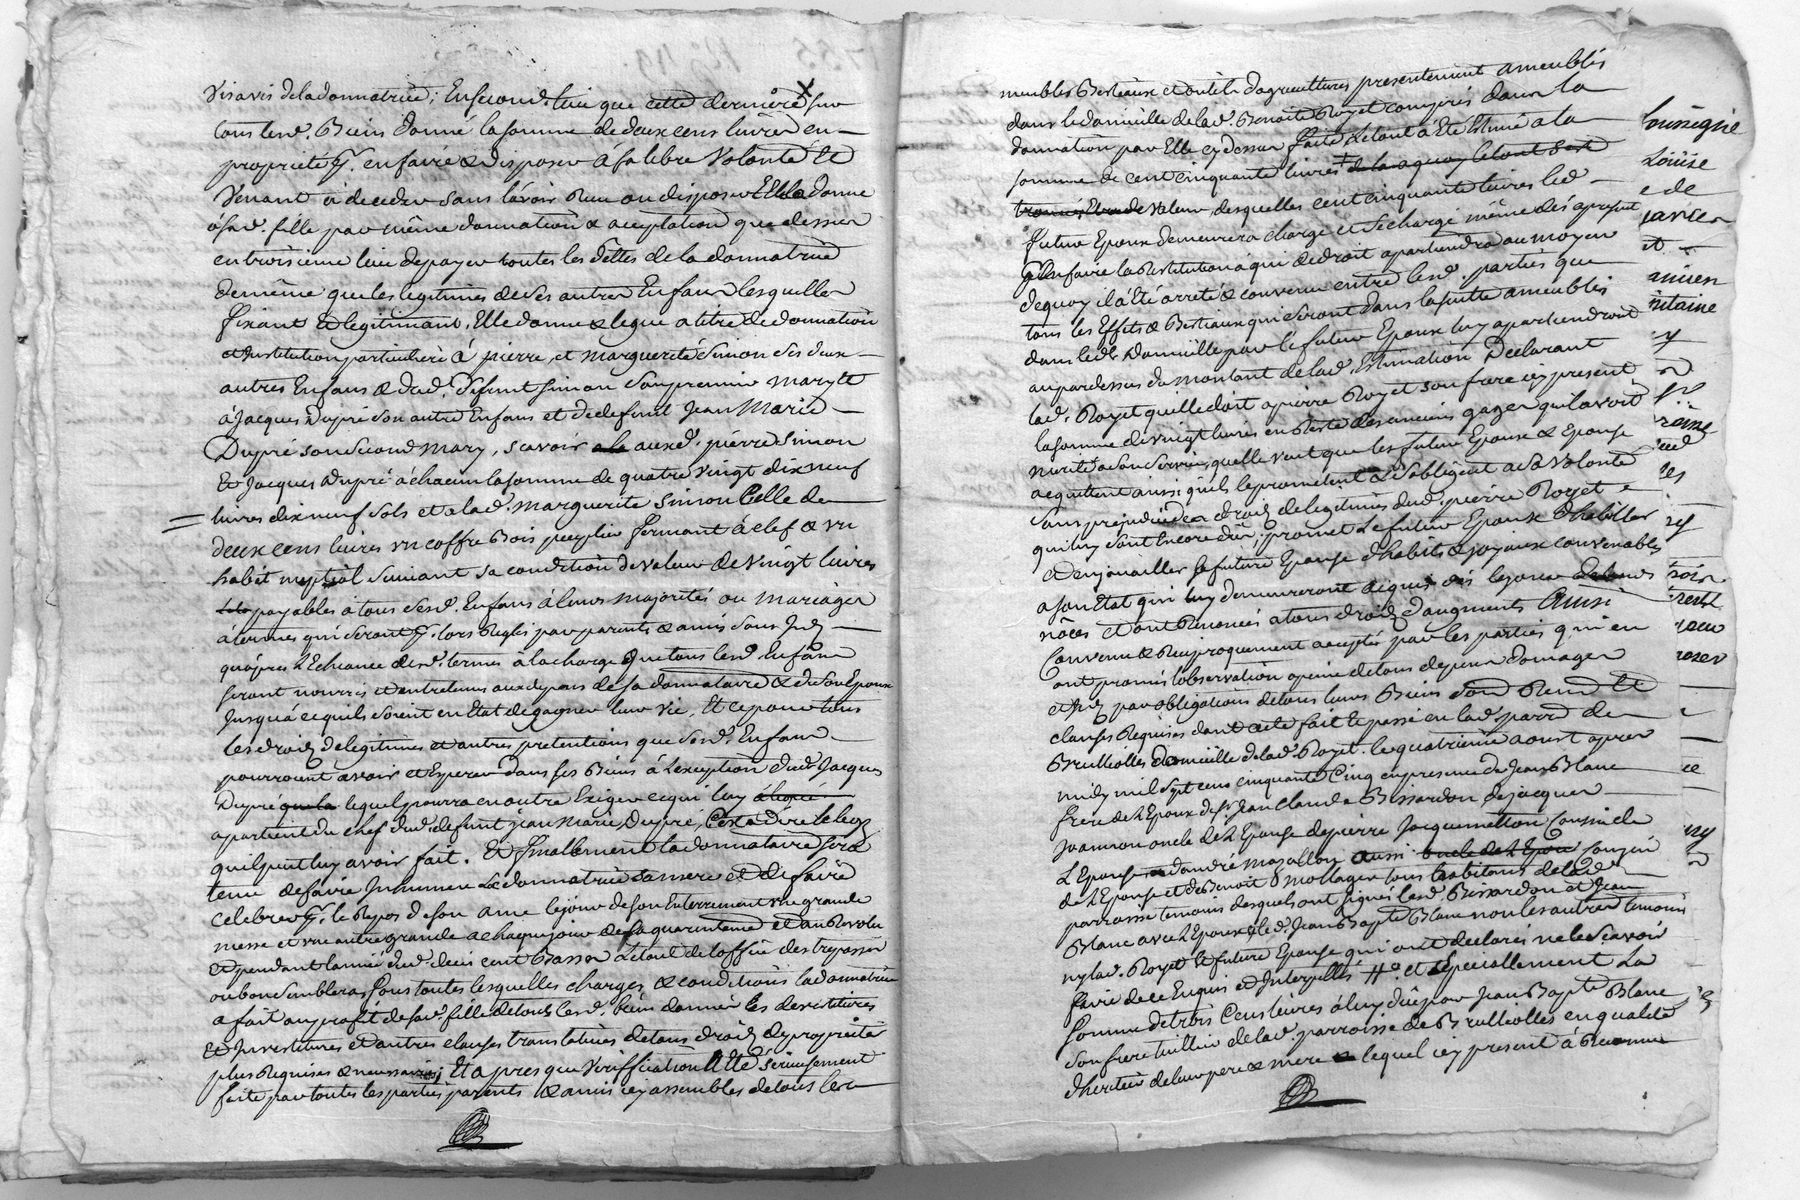 visavis de la donnatrice ; En second lieu que cette dernière sur
tous lesd. Biens donné la somme de deux cens livres en
propriété pr. en faire & disposer à sa libre Volonté Et
Venant à deceder sans l'avoir ou disposer Elle la donne
à sad. fille par même donnation & aceptation que dessus
en troisieme lieu de payer toutes les dettes de la donnatrice
de même que les legitimes de ses autres Enfans lesquelles
fixant Et legitimant, Elle donne & legue a titre de donnation
et institution particuliere à pierre, et marguerite Simon ses deux
autres Enfans & dud. defunt Simon son premier mary Et
à Jacques Dupré son autre Enfans et de defunt Jean Marie
Dupré son second mary, scavoir auxd. pierre Simon
Et Jacques Dupré à chacun la somme de quatre vingt dix neuf
livres dix neuf sols et a lad. marguerite Simon Celle de
deux cens livres un coffre Bois peuplier fermant à clef & un
habit nuptial suivant sa condition de valeur de Vingt livres
payables à tous sesd. Enfans à leurs majorités ou mariages
à termes qui seront pr. lors Reglés par parents & amis sans
qu'après L'Echeance desd. termes à la charge que tous lesd. Enfans
seront nourris et entretenus aux depens de sa donnataire & de son Epoux
Jusqu'à ce qu'ils soient en Etat de gagner leur vie, Et ce pour tous
les droits de legitimes et autres pretentions que sesd. Enfans
pourroient avoir et Esperer dans ses Biens à L'exception dud. Jacques
Dupré lequel pourra en outre Exiger ce qui luy
apartient du chef dud. defunt jean Marie Dupré, C'est à dire le legs
qu'il peut luy avoir fait. Et finallement la donnataire sera
tenue de faire Inhumer La donnatrice sa mere et de faire
celebrer pr. le Repos de son ame le jour de son Enterrement une grande
messe et une autre grande a chaque jour de sa quarantene et an Revolu
Et pendant l'année dud. deuis cent Basses L'etout de l'office des trepassés
ou bon semblera, sous toutes lesquelles charges & conditions la donnatrice
a fait au profit de sad. fille de tous lesd. biens donnés les devestitures
Et Investitures et autres clauses translatives de tous droits de proprieté
plus Requises & necessaires ; Et apres que Verification a Eté serieusement
faite par toutes les parties parents & amis icy assemblés de tous les
meubles Bestiaux et outils d'agricultures presentement ameublés
dans le domicille de lad. Benoite Royet compris dans la
donnation par Elle cy dessus faite Letout a Eté Estimé a la
somme de cent cinquante livres
valeur desquelles cent cinquante livres led.
futur Epoux demeurera chargé et se charge même dés apresent
pr. En faire la Restitution à qui de droit apartiendra au moyen
dequoy il a Eté arreté & convenu entre lesd. parties que
tous les Effets & Bestiaux qui seront dans la suitte ameublés
dans led. domicille par le futur Epoux luy apartiendront
au par dessus du montant de lad. Estimation Declarant
lad. Royet qu'elle doit a pierre Royet son frere icy present
la somme de vingt livres en Reste des anciens gages qu'il avoit
merité a son service, quelle veut que les futurs Epoux & Epouse
acquittent ainsi qu'ils le promettent & s'obligent a sa Volonté
sans prejudice des droits de legitimes dud. pierre Royet
qui luy sont Encore dûs ; promet Le futur Epoux d'habiller
et Enjouailler sa future Epouse d'habits & joyaux convenables
a son Etat qui luy demeureront acquis dés le jour de leurs
nôces et ont Renoncés a tous droits d'augments Ainsi
Convenu & Reciproquement accepté par les parties qui en
ont promis l'observation a peine de tous depens domages
et par obligations de tous leurs Biens Sous Renon Et
clauses Requises dont acte fait Et passé en lad. parroisse de
Brullioles domicille de lad. Royet. le quatrieme aoust apres
midy mil sept cens cinquante Cinq en presence de Jean Blanc
frere de L'Epoux de Sr. Jean Claude Bissardon de jacques
Joannon oncle de L'Epouse de pierre Jacquemetton Cousin de
L'Epouse d'andré mazallon aussi cousin
de L'Epouse et de Benoit mollager tous habitans de lad.
parroisse temoins desquels ont signés lesd. Bissardon et Jean
Blanc avec L'Epoux & led. Jean Bapte Blanc non les autres temoins
ny lad. Royet & future Epouse qui ont declarés ne le scavoir
faire de ce Enquis et Interpellés # et specialement La
somme de trois Cens livres à luy düe par Jean Bapte Blanc
son frere tuillier de lad. parroisse de Brullioles en qualité
d'heritier de leurs pere & mere lequel icy present à Reconnu
soussigné
Louise
e de
janvier
et